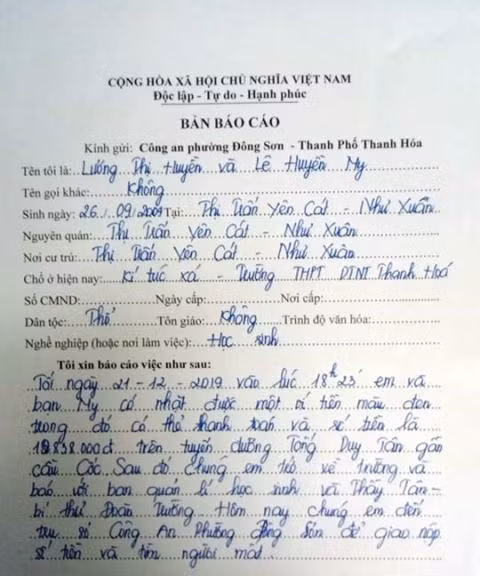 CỘNG HÒA XÃ HỘI CHỦ NGHĨA VIỆT NAM
Độc lập - Tự do - Hạnh phúc
BẢN BÁO CÁO
Kính gửi: Công an phường Đông Sơn - Thanh Phố Thanh Hóa
Tên tôi là: Lương Thị Huyền và Lê Huyền My
Tên gọi khác: Không
Sinh ngày: 26/09/2004 Tại: Thị Trấn Yên Cát - Như Xuân
Nguyên quán: Thị Trấn Yên Cát - Như Xuân
Nơi cư trú: Thị Trấn Yên Cát - Như Xuân
Chỗ ở hiện nay: Kí túc xá - Trường THPT DTNT Thanh Hoá
Số CMND: Ngày cấp: Nơi cấp:
Dân tộc: Thổ Tôn giáo: Không Trình độ văn hóa:
Nghề nghiệp (hoặc nơi làm việc): Học sinh
Tôi xin báo cáo việc như sau:
Tối ngày 21-12-2019 vào lúc 18h25' em và
bạn My có nhặt được một ví tiền màu đen
trong đó có thẻ thanh toán và số tiền là
838.000đ trên tuyến đường Tống Duy Tân gần
cầu Cốc. Sau đó chúng em trở về trường và
báo với ban quản lí học sinh và Thầy Tân -
bí thư Đoàn Trường. Hôm nay chúng em đến
trụ sở Công An Phường Đông Sơn để giao nộp
số tiền và tìm người mất.